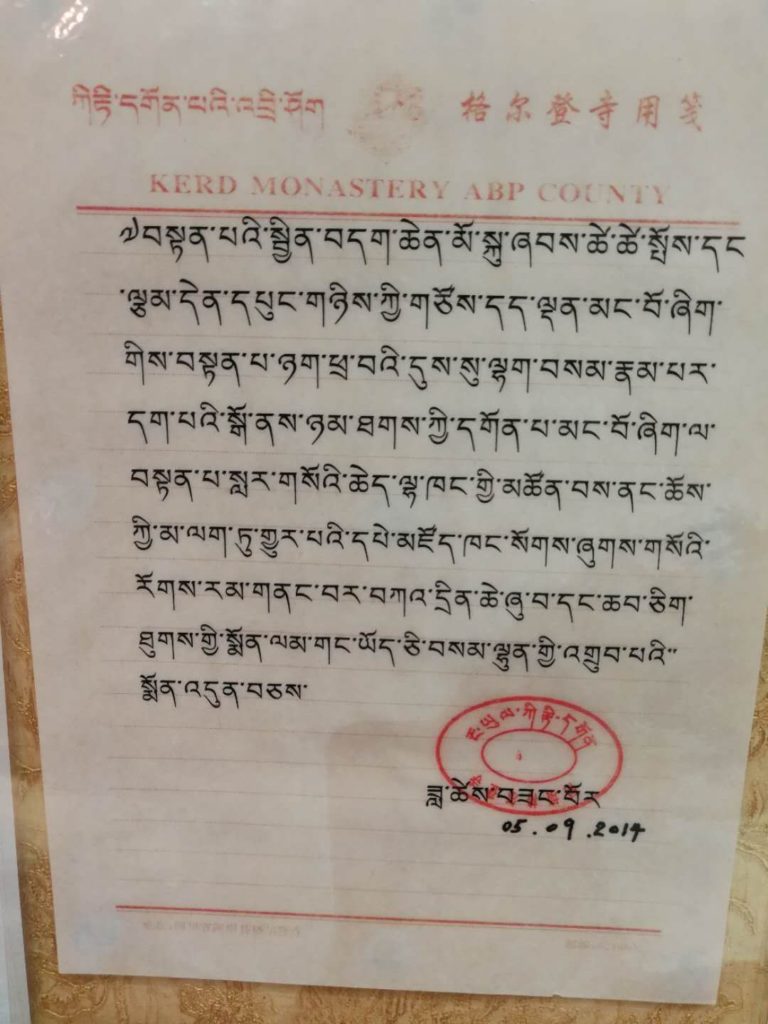 ཀིརྟི་དགོན་པའི་འབྲི་ཤོག
格尔登寺用笺
KERD MONASTERY ABP COUNTY
༡༽བསྟན་པའི་སྦྱིན་བདག་ཆེན་མོ་སྐུ་ཞབས་ཚེ་ཚེ་སྤོས་དང
་ལྕམ་དེན་དཔུང་གཉིས་ཀྱི་གཙོས་དད་ལྡན་མང་པོ་ཞིག་
གིས་བསྟན་པ་ཉག་ཕྲ་བའི་དུས་སུ་ལྷག་བསམ་རྣམ་པར་
དག་པའི་སྒོ་ནས་ཉམ་ཐགས་ཀྱི་དགོན་པ་མང་པོ་ཞིག་ལ་
བསྟན་པ་སླར་གསོའི་ཆེད་ལྷ་ཁང་གྱི་མཚོན་བས་ནང་ཆོས་
ཀྱི་མ་ལག་ཏུ་གྱུར་པའི་དཔེ་མཛོད་ཁང་སོགས་ཞུགས་གསོའི་
རོགས་རམ་གནང་བར་བཀའ་དྲིན་ཆེ་ཞུ་བ་དང་ཆབ་ཅིག་
ཐུགས་ཀྱི་སྨོན་ལམ་གང་ཡོད་ཅི་བསམ་ལྷུན་གྱི་འགྲུབ་པའི"
སྨོན་འདུན་བཅས་
ཟླ་ཚེས་བཟང་པོར
05.09.2014